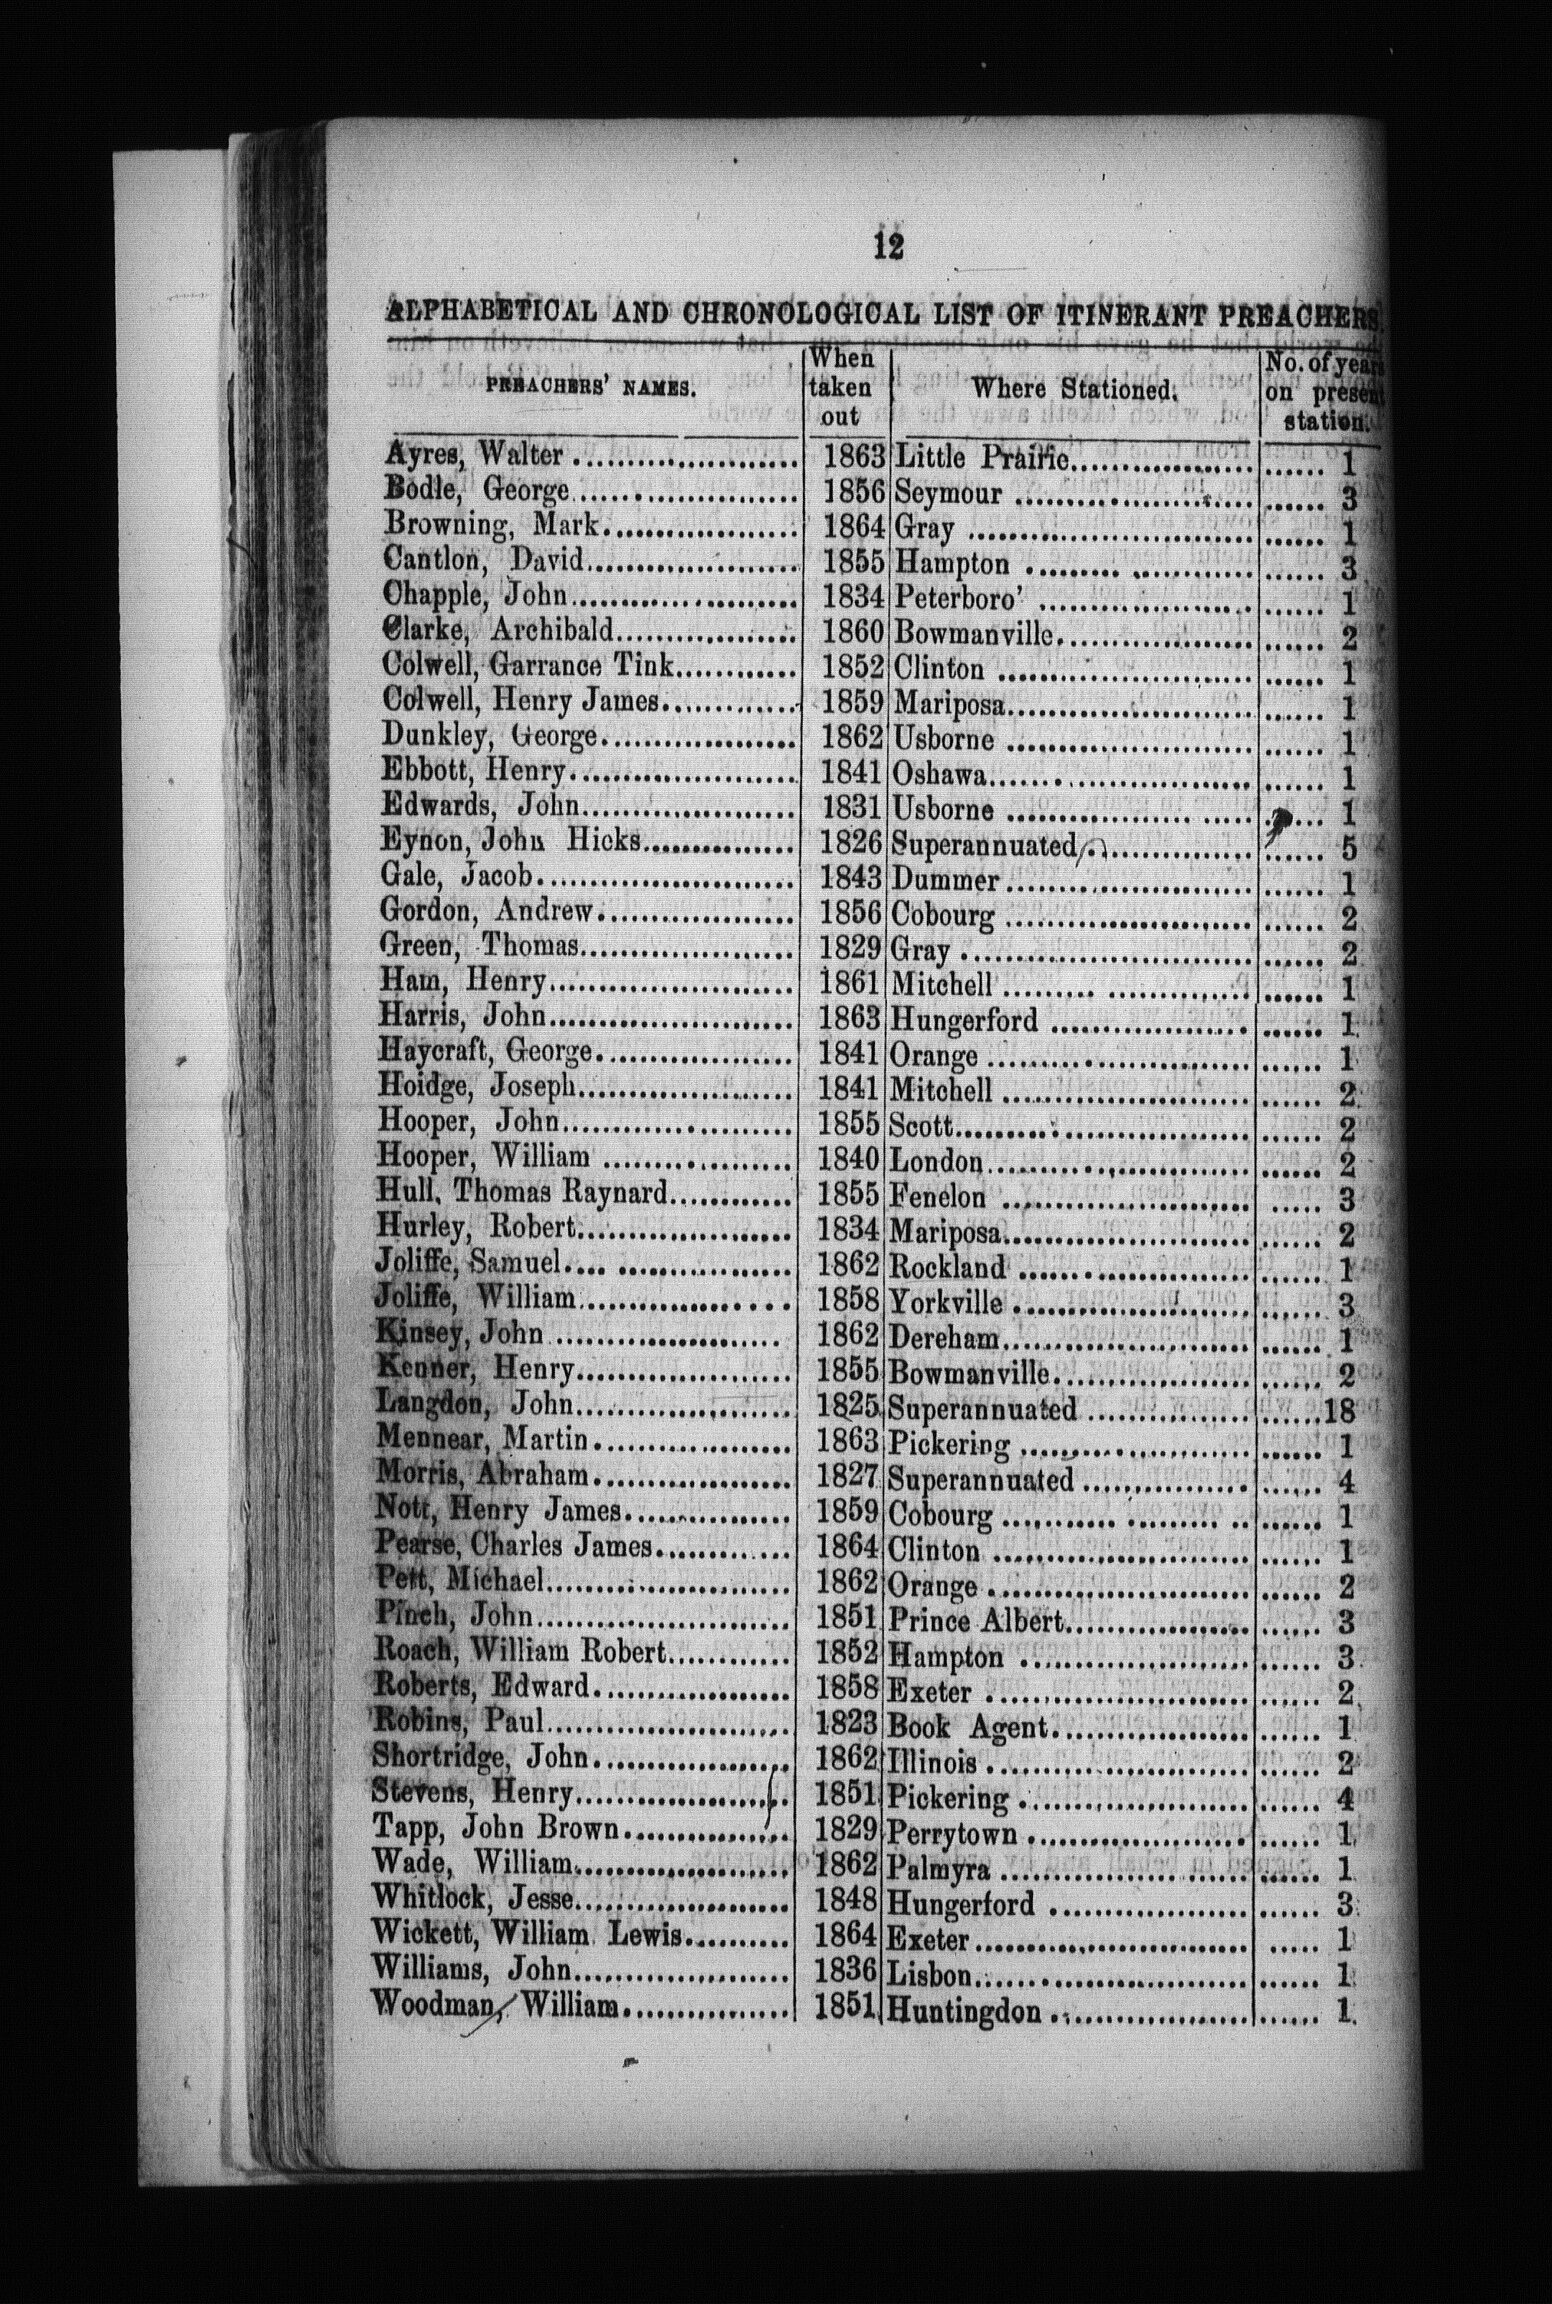 12
ALPHABETICAL AND CHRONOLOGICAL LIST OF ITINERANT PREACHERS.
PREACHERS' NAMES. When taken out Where Stationed. No. of years on present station.
Ayres, Walter 1863 Little Prairie 1
Bodle, George 1856 Seymour 3
Browning, Mark 1864 Gray 1
Cantlon, David 1855 Hampton 3
Chapple, John 1834 Peterboro' 1
Clarke, Archibald 1860 Bowmanville 2
Colwell, Garrance Tink 1852 Clinton 1
Colwell, Henry James 1859 Mariposa 1
Dunkley, George 1862 Usborne 1
Ebbott, Henry 1841 Oshawa 1
Edwards, John 1831 Usborne 1
Eynon, John Hicks 1826 Superannuated 5
Gale, Jacob 1843 Dummer 1
Gordon, Andrew 1856 Cobourg 2
Green, Thomas 1829 Gray 2
Ham, Henry 1861 Mitchell 1
Harris, John 1863 Hungerford 1
Haycraft, George 1841 Orange 1
Hoidge, Joseph 1841 Mitchell 2
Hooper, John 1855 Scott 2
Hooper, William 1840 London 2
Hull, Thomas Raynard 1855 Fenelon 3
Hurley, Robert 1834 Mariposa 2
Joliffe, Samuel 1862 Rockland 1
Joliffe, William 1858 Yorkville 3
Kinsey, John 1862 Dereham 1
Kenner, Henry 1855 Bowmanville 2
Langdon, John 1825 Superannuated 18
Mennear, Martin 1863 Pickering 1
Morris, Abraham 1827 Superannuated 4
Nott, Henry James 1859 Cobourg 1
Pearse, Charles James 1864 Clinton 1
Pett, Michael 1862 Orange 2
Pinch, John 1851 Prince Albert 3
Roach, William Robert 1852 Hampton 3
Roberts, Edward 1858 Exeter 2
Robins, Paul 1823 Book Agent 1
Shortridge, John 1862 Illinois 2
Stevens, Henry 1851 Pickering 4
Tapp, John Brown 1829 Perrytown 1
Wade, William 1862 Palmyra 1
Whitlock, Jesse 1848 Hungerford 3
Wickett, William Lewis 1864 Exeter 1
Williams, John 1836 Lisbon 1
Woodman, William 1851 Huntingdon 1